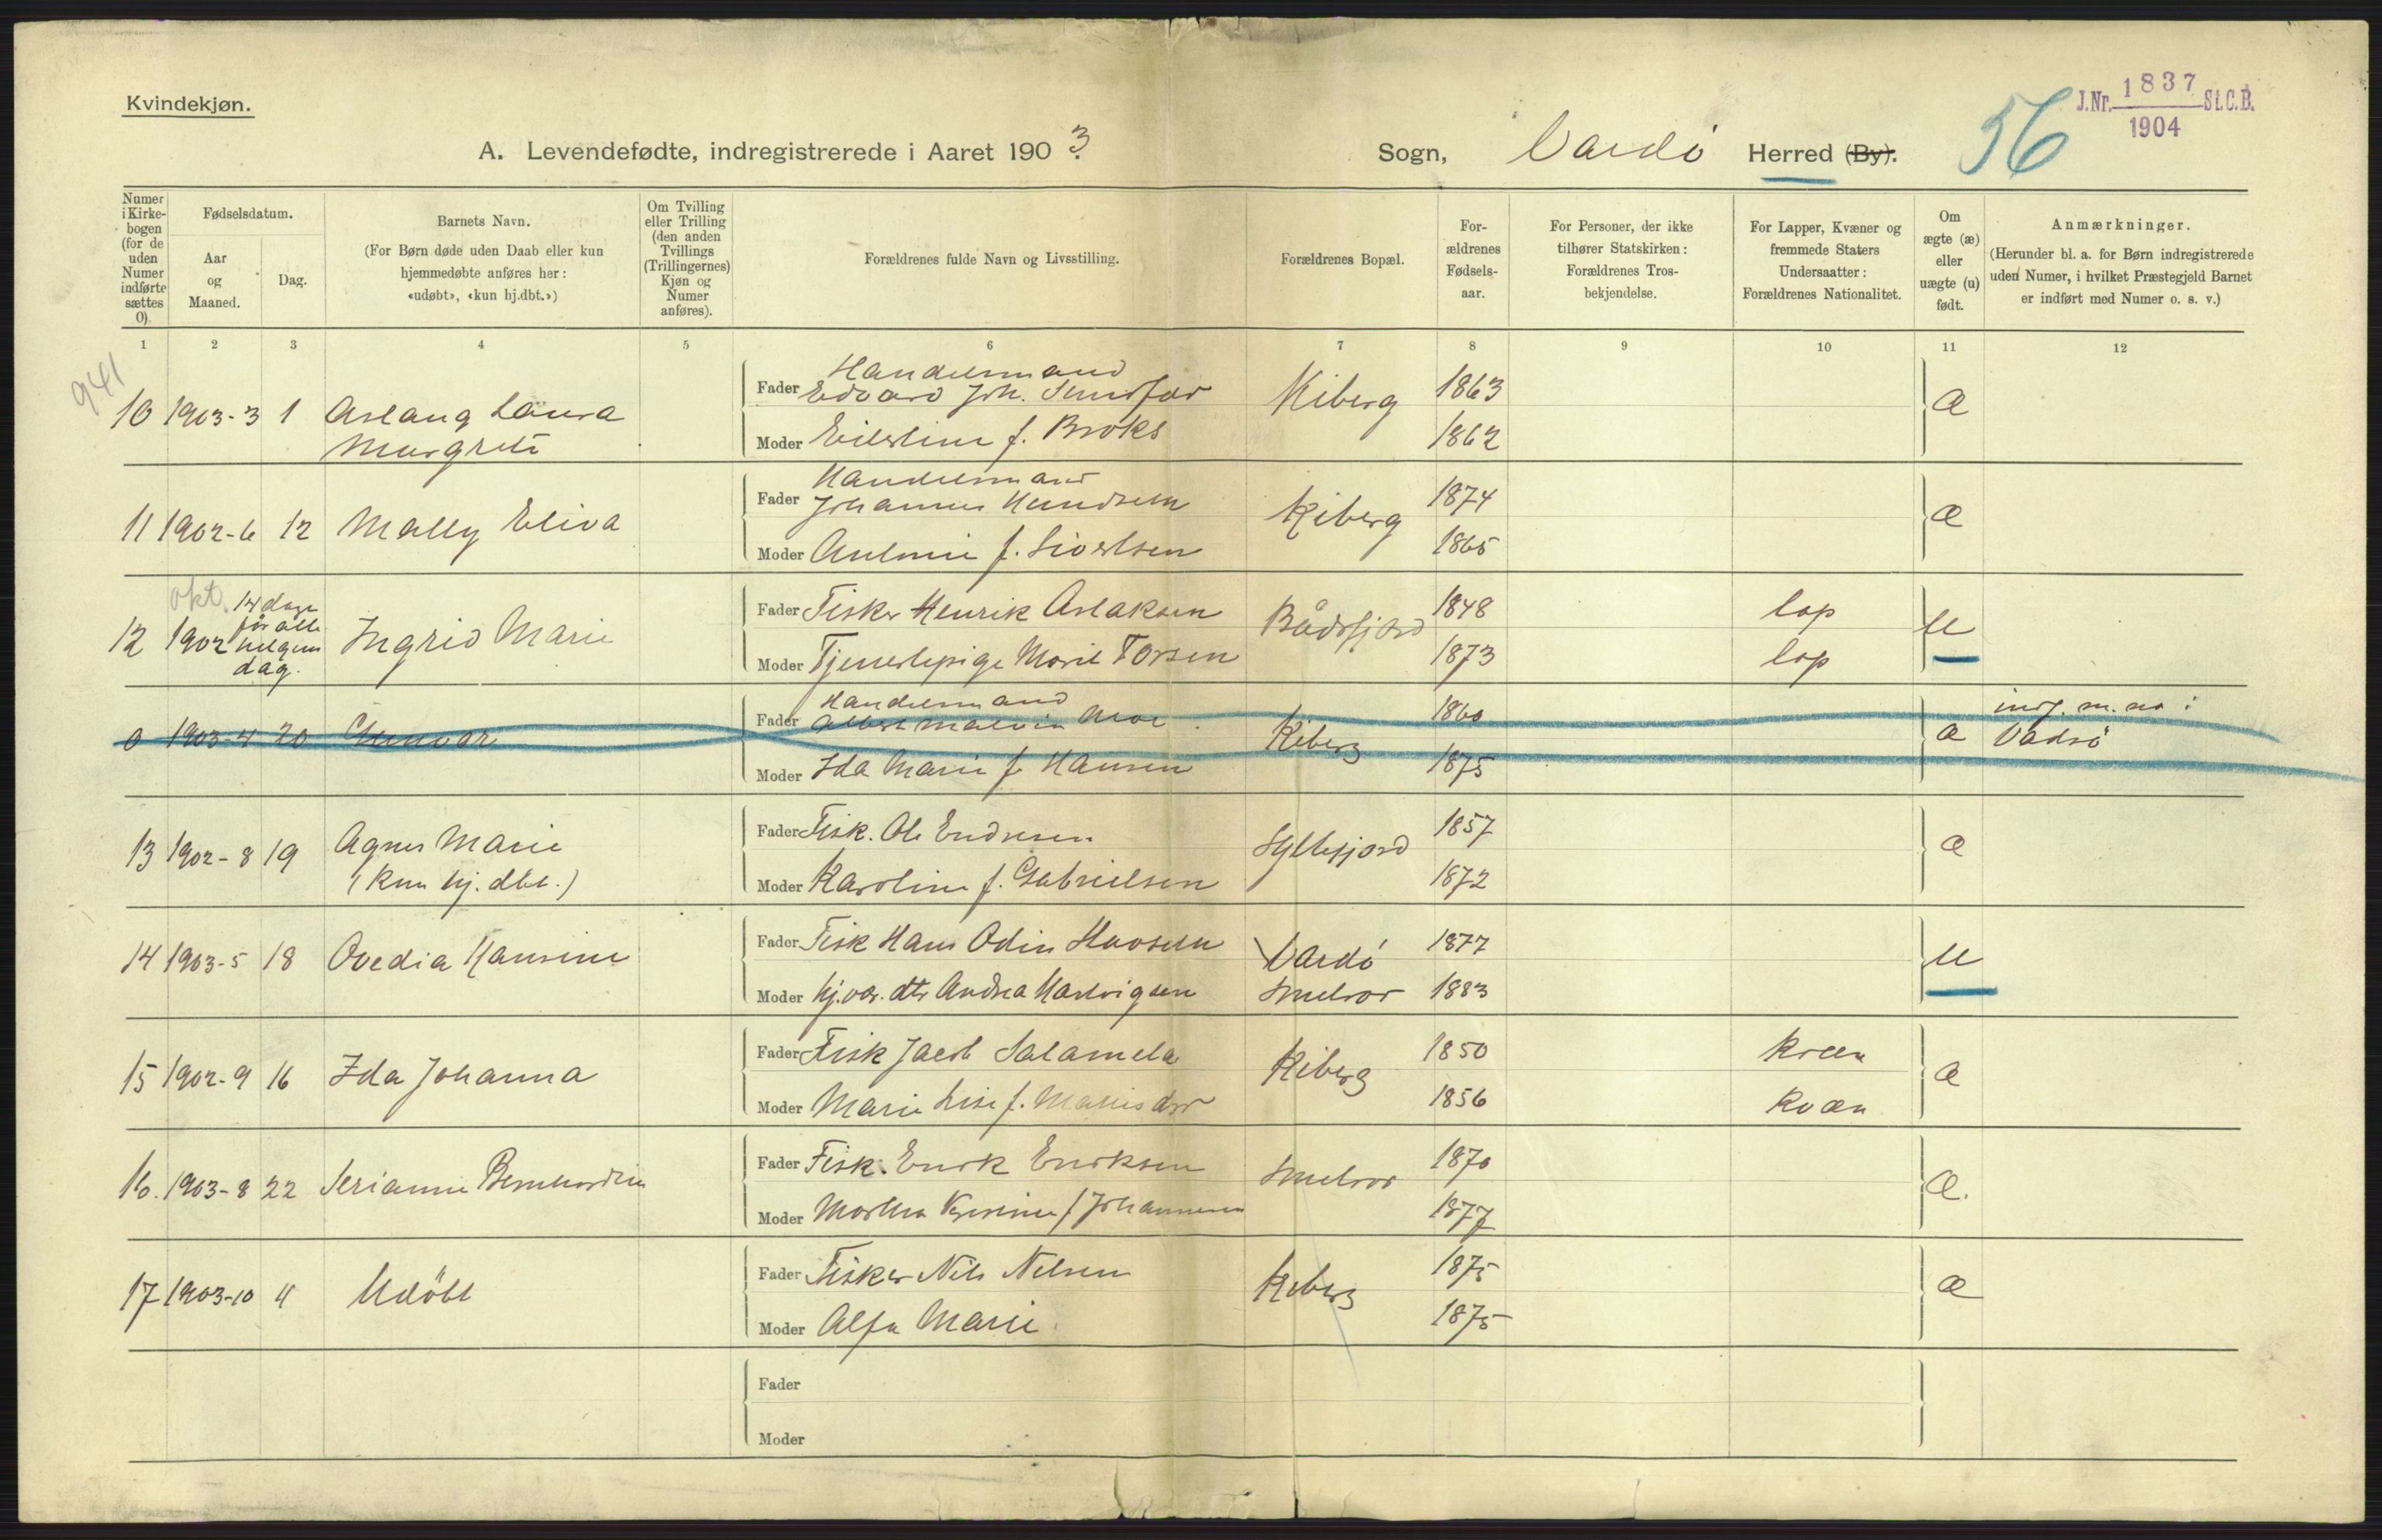 Kvindekjøn.
J.Nr. 1837 St.C.B.
1904
56
A. Levendefødte, indregistrerede i Aaret 1903.
Sogn, Vardö Herred (By).
Numer i Kirkebogen (for de uden Numer indførte sættes 0).
Fødselsdatum.
Aar og Maaned.
Dag.
Barnets Navn.
(For Børn døde uden Daab eller kun hjemmedøbte anføres her: «udøbt», «kun hj.dbt.»)
Om Tvilling eller Trilling (den anden Tvillings (Trillingernes) Kjøn og Numer anføres).
Forældrenes fulde Navn og Livsstilling.
Forældrenes Bopæl.
For-ældrenes Fødsels-aar.
For Personer, der ikke tilhører Statskirken: Forældrenes Tros-bekjendelse.
For Lapper, Kvæner og fremmede Staters Undersaatter: Forældrenes Nationalitet.
Om ægte (æ) eller uægte (u) født.
Anmærkninger.
(Herunder bl. a. for Børn indregistrerede uden Numer, i hvilket Præstegjeld Barnet er indført med Numer o. s. v.)
1 2 3 4 5 6 7 8 9 10 11 12
941
10 1903-3 1 Aslaug Laura Margrete
Fader Handelsmand Edvard Joh. Kiberg 1863 æ
Moder f. Broks 1862
11 1902-6 12 Mally Eliva
Fader Handelsmand Johannes Kiberg 1874 æ
Moder f. Sivertsen 1865
okt.
12 1902 14 dage før alle helgens dag. Ingrid Marie
Fader Fisker Henrik Aslaksen Bådsfjord 1848 lap u
Moder Tjenestepige Marit Torsen 1873 lap
0 1903-4 20 Gunvor
Fader Handelsmand Albert Moe Kiberg 1860 æ indf. m. no i Vadsö
Moder Ida Marie f. Hansen 1875
13 1902-8 19 Agnes Marie (kun hj. dbt.)
Fader Fisk. Ole Endresen Syltefjord 1857 æ
Moder Karoline f. Gabrielsen 1872
14 1903-5 18 Ovedia Hansine
Fader Fisk Hans Odin Vardö 1877 u
Moder hj.vær. dtr Andrea Hartvigsen Smelror 1883
15 1902-9 16 Ida Johanna
Fader Fisk Jacob Salamela Kiberg 1850 kvæn æ
Moder Marie Lise f. 1856 kvæn
16. 1903-8 22
Fader Fisk. Enok Enoksen Smelror 1870 æ.
Moder Martha f Johannesen 1877
17 1903-10 4 Udöbt
Fader Fisker Nils Nilsen Kiberg 1875 æ
Moder Alfa Marie 1875
Fader
Moder